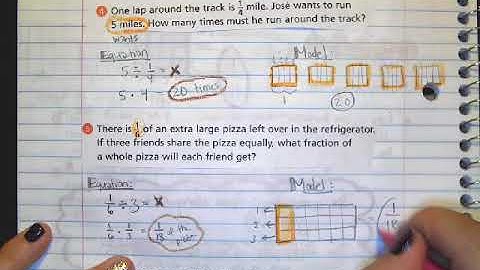 4 One lap around the track is 1/4 mile. José wants to run
5 miles. How many times must he run around the track?
wants
Equation Model:
5 ÷ 1/4 = x
5 · 4 20 times
1 20
5 There is 1/6 of an extra large pizza left over in the refrigerator.
If three friends share the pizza equally, what fraction of
a whole pizza will each friend get?
Equation: Model:
1/6 ÷ 3 = x
1/6 · 1/3 = 1/18 of the pizza
1
2
3
= 1/18